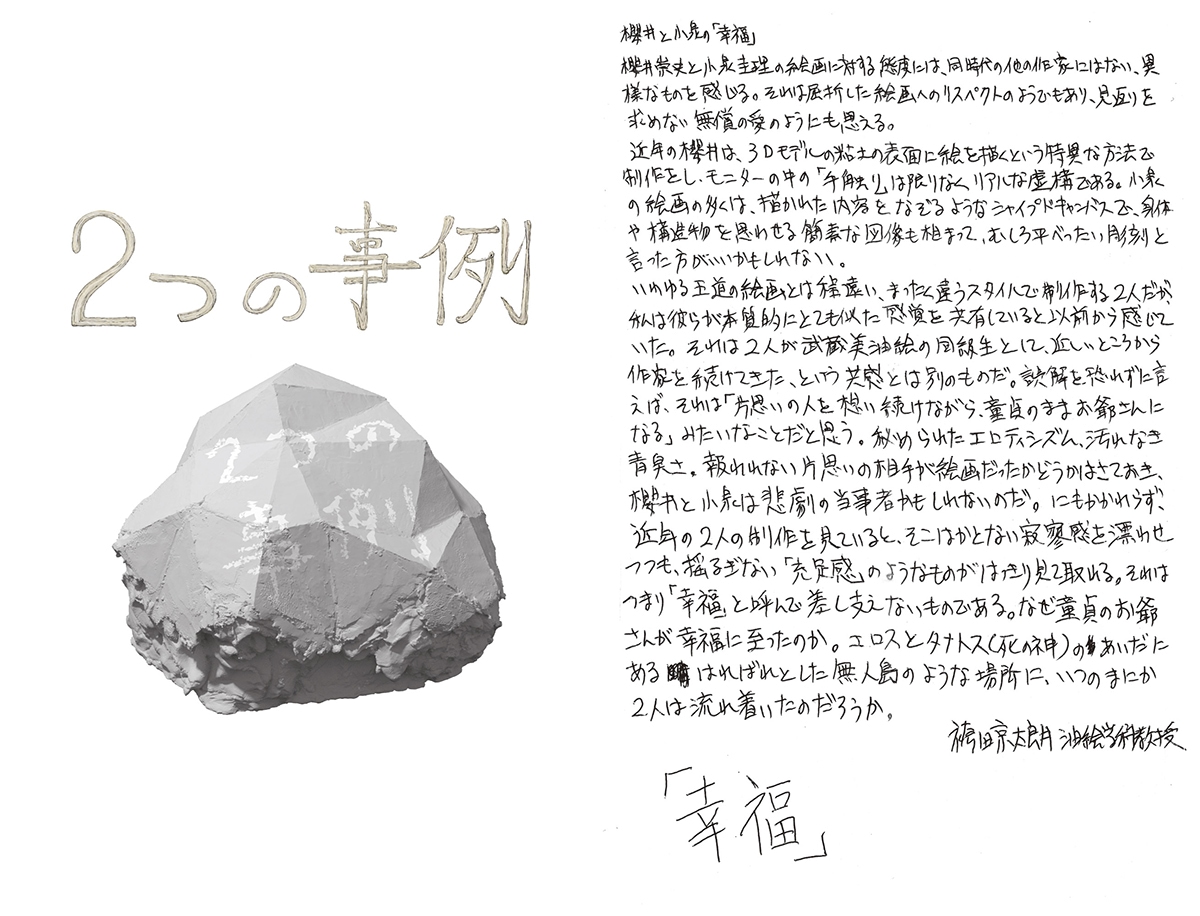 2つの事例
2つの
事例
櫻井と小泉の「幸福」
櫻井崇史と小泉圭理の絵画に対する態度には、同時代の他の作家にはない、異
様なものを感じる。それは屈折した絵画へのリスペクトのようでもあり、見返りを
求めない無償の愛のようにも思える。
近年の櫻井は、3Dモデルの粘土の表面に絵を描くという特異な方法で
制作をし、モニターの中の「手触り」は限りなくリアルな虚構である。小泉
の絵画の多くは、描かれた内容をなぞるようなシャイプドキャンバスで、身体
や構造物を思わせる簡素な図像も相まって、むしろ平べったい彫刻と
言った方がいいかもしれない。
いわゆる王道の絵画とは程遠い、まったく違うスタイルで制作する2人だが、
私は彼らが本質的にとても似た感覚を共有していると以前から感じて
いた。それは2人が武蔵美油絵の同級生として、近しいところから
作家を続けてきた、という共感とは別のものだ。誤解を恐れずに言
えば、それは「片思いの人を想い続けながら、童貞のままお爺さんに
なる」みたいなことだと思う。秘められたエロティシズム、汚れなき
青臭さ。報われない片思いの相手が絵画だったかどうかはさておき、
櫻井と小泉は悲劇の当事者かもしれないのだ。にもかかわらず、
近年の2人の制作を見ていると、そこはかとない寂寥感を漂わせ
つつも、揺るぎない「充足感」のようなものがはっきり見て取れる。それは
つまり「幸福」と呼んで差し支えないものである。なぜ童貞のお爺
さんが幸福に至ったのか。エロスとタナトス(死の神)のあいだに
ある はればれとした無人島のような場所に、いつのまにか
2人は流れ着いたのだろうか。
袴田京太朗 油絵学科教授
「幸福」